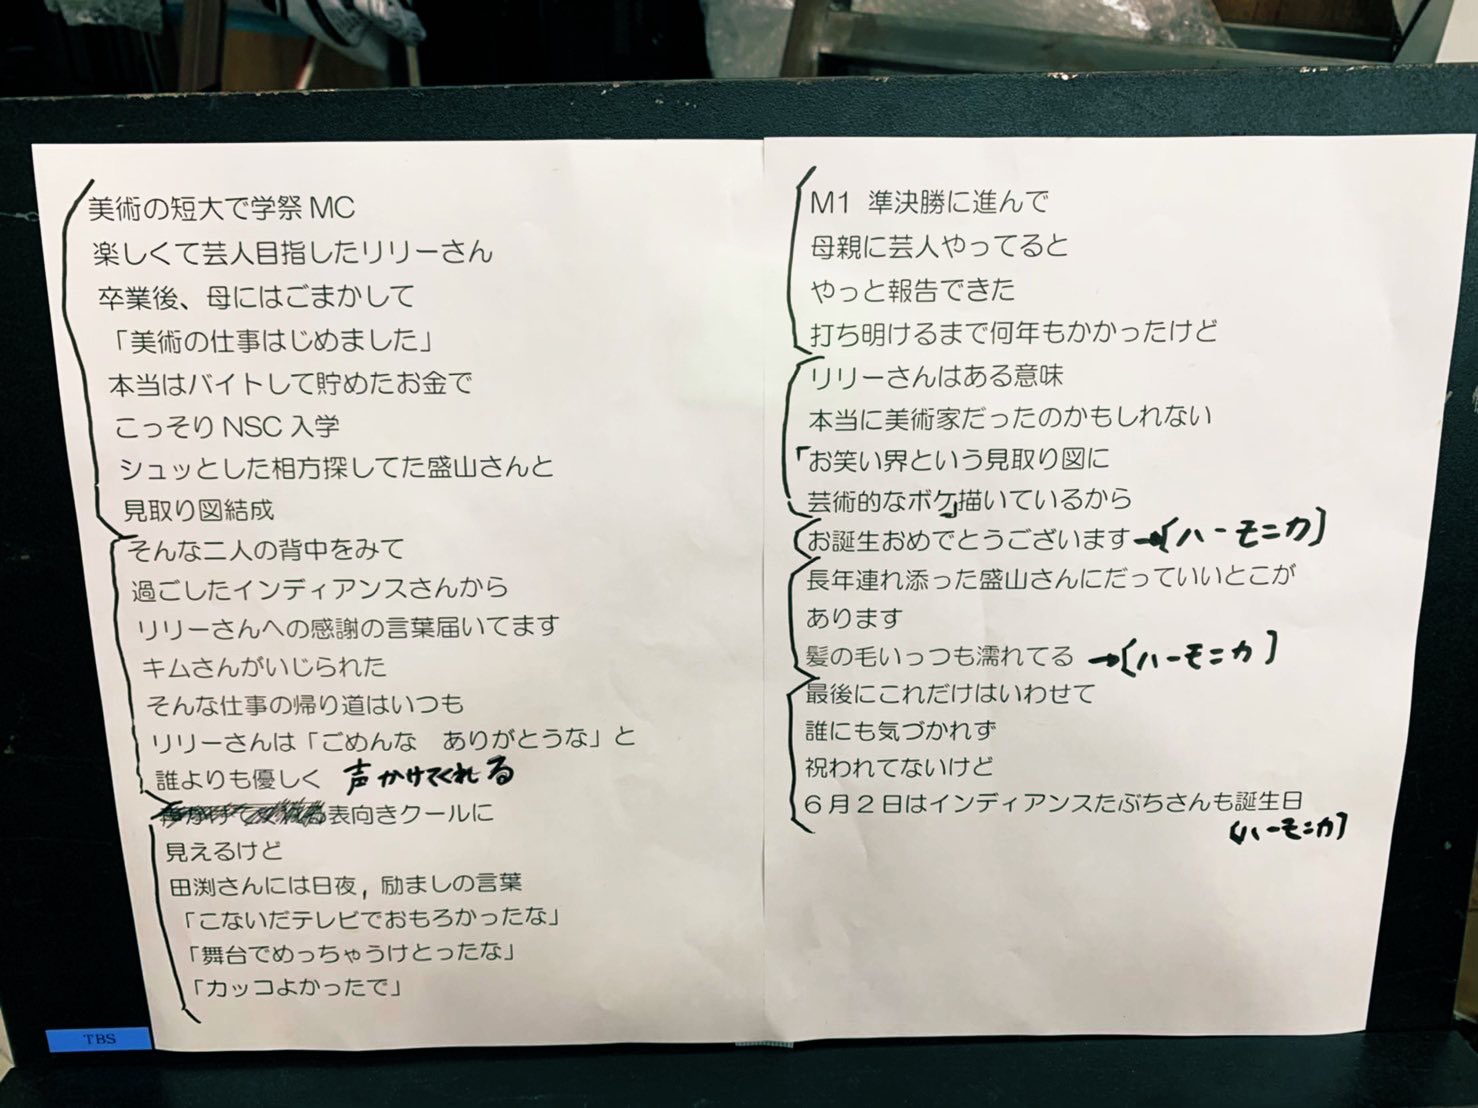 美術の短大で学祭MC
楽しくて芸人目指したリリーさん
卒業後、母にはごまかして
「美術の仕事はじめました」
本当はバイトして貯めたお金で
こっそりNSC入学
シュッとした相方探してた盛山さんと
見取り図結成
そんな二人の背中をみて
過ごしたインディアンスさんから
リリーさんへの感謝の言葉届いてます
キムさんがいじられた
そんな仕事の帰り道はいつも
リリーさんは「ごめんな　ありがとうな」と
誰よりも優しく 声かけてくれる
表向きクールに
見えるけど
田渕さんには日夜, 励ましの言葉
「こないだテレビでおもろかったな」
「舞台でめっちゃうけとったな」
「カッコよかったで」
TBS
M1 準決勝に進んで
母親に芸人やってると
やっと報告できた
打ち明けるまで何年もかかったけど
リリーさんはある意味
本当に美術家だったのかもしれない
「お笑い界という見取り図に
芸術的なボケ」描いているから
お誕生おめでとうございます→[ハーモニカ]
長年連れ添った盛山さんにだっていいとこが
あります
髪の毛いっつも濡れてる →[ハーモニカ]
最後にこれだけはいわせて
誰にも気づかれず
祝われてないけど
6月2日はインディアンスたぶちさんも誕生日
[ハーモニカ]